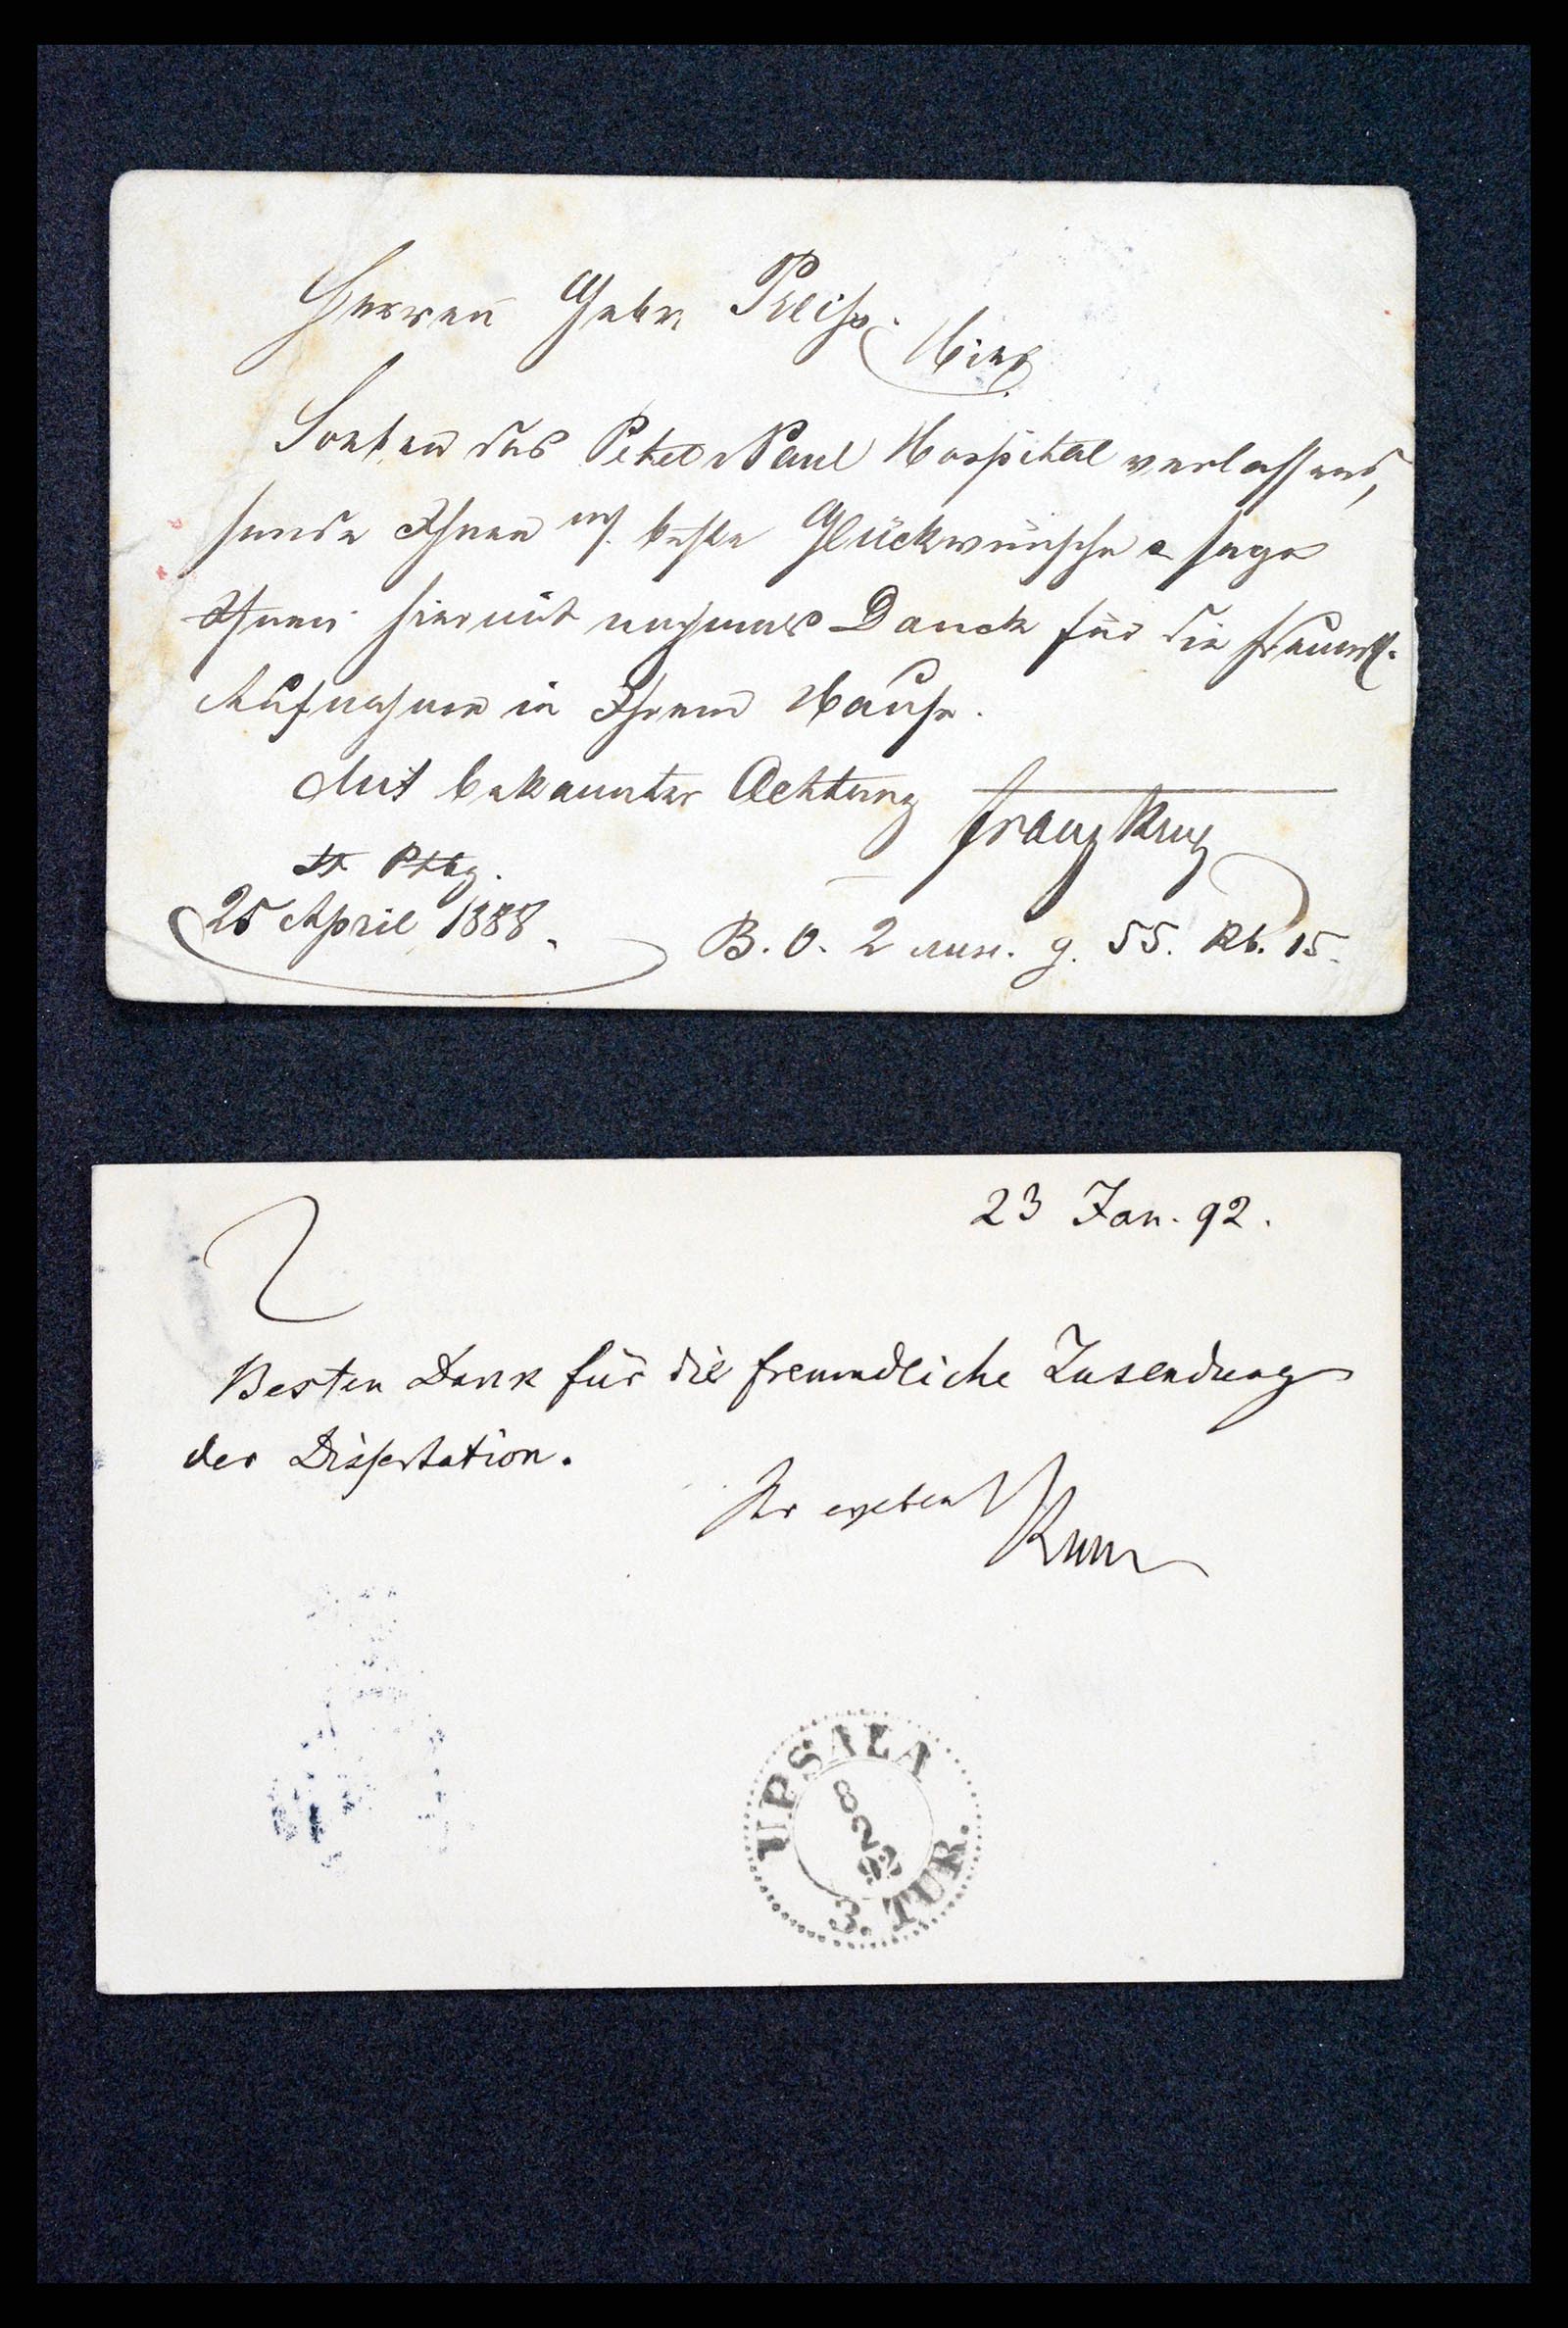 Herren Gebr.
Hier
Soeben das Peter Paul Hospital verlassend,
sende Ihnen m/ beste Glückwünsche & sage
Ihnen hiermit nochmals Danck für die freundl.
Aufnahme in Ihrem Hause.
Mit bekannter Achtung
Franz Krug
St. Ptbg.
25 April 1888.
B. O. 2 g. 55. Rb. 15.
23 Jan. 92.
Besten Dank für die freundliche Zusendung
der Dissertation.
Ihr ergeben
UPSALA
8
2
92
3. TUR.